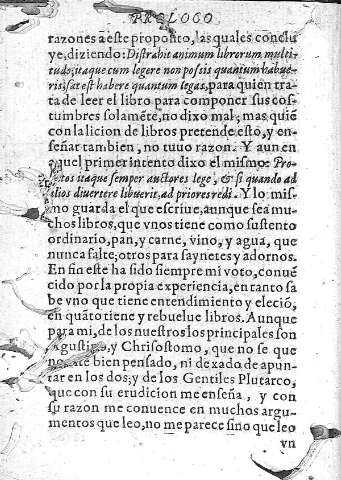 PROLOGO
razones a este proposito, las quales conclu
ye, diziendo: Distrahit animum librorum multi
tudo, itaque cum legere non possis quantum habue
ris, sat est habere quantum legas, para quien tra
ta de leer el libro para componer sus cos-
tumbres solamẽte, no dixo mal, mas quiẽ
con la licion de libros pretende esto, y en-
señar tambien, no tuuo razon. Y aun en
aquel primer intento dixo el mismo: Pro
tos itaque semper auctores lege, & si quando ad
alios diuertere libuerit, ad priores redi. Y lo mis
mo guarda el que escriue, aunque sea mu-
chos libros, que vnos tiene como sustento
ordinario, pan, y carne, vino, y agua, que
nunca falte; otros para saynetes y adornos.
En fin este ha sido siempre mi voto, conuẽ
cido por la propia experiencia, en tanto sa
be vno que tiene entendimiento y elecció,
en quãto tiene y rebuelue libros. Aunque
para mi, de los nuestros los principales son
Agustino, y Chrisostomo, que no se que
no esté bien pensado, ni dexado de apun-
tar en los dos; y de los Gentiles Plutarco,
que con su erudicion me enseña, y con
su razon me conuence en muchos argu-
mentos que leo, no me parece sino que leo
vn